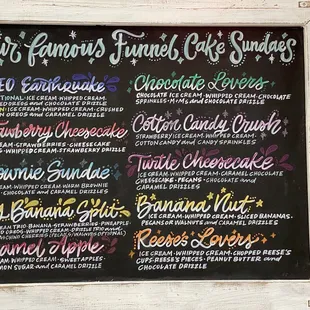 ur famous Funnel Cake Sundaes
EO Earthquake
TIONAL-ICE CREAM-WHIPPED CREAM-
OREOS AND CHOCOLATE DRIZZLE
ICE CREAM-WHIPPED CREAM-CRUSHED
N OREOS AND CARAMEL DRIZZLE
rawberry Cheesecake
EAM-STRAWBERRIES-CHEESECAKE
S-WHIPPED CREAM-STRAWBERRY DRIZZLE
ownie Sundae
AM-WHIPPED CREAM WARM BROWNIE
ED OREOS-CHOCOLATE AND CARAMEL DRIZZLE
Banana Split
AN TRIO BANANA-STRAWBERRIES-PINEAPPLE
amel Apple
AM-WHIPPED CREAM-SWEET APPLES-
MON SUGAR AND CARAMEL DRIZZLE
Chocolate Lovers
CHOCOLATE ICE CREAM-WHIPPED CREAM-CHOCOLATE
SPRINKLES-M&MS AND CHOCOLATE DRIZZLE
Cotton Candy Crush
STRAWBERRY ICE CREAM-WHIPPED CREAM-
COTTON CANDY AND CANDY SPRINKLES
Turtle Cheesecake
ICE CREAM-WHIPPED CREAM-CARAMEL CHOCOLATE
CHEESECAKE-PECANS-CHOCOLATE AND
CARAMEL DRIZZLES
Banana Nut
ICE CREAM-WHIPPED CREAM-SLICED BANANAS-
PECANS OR WALNUTS AND CARAMEL DRIZZLES
Reese's Lovers
ICE CREAM-WHIPPED CREAM-CHOPPED REESE'S
CUPS-REESE'S PIECES-PEANUT BUTTER AND
CHOCOLATE DRIZZLE